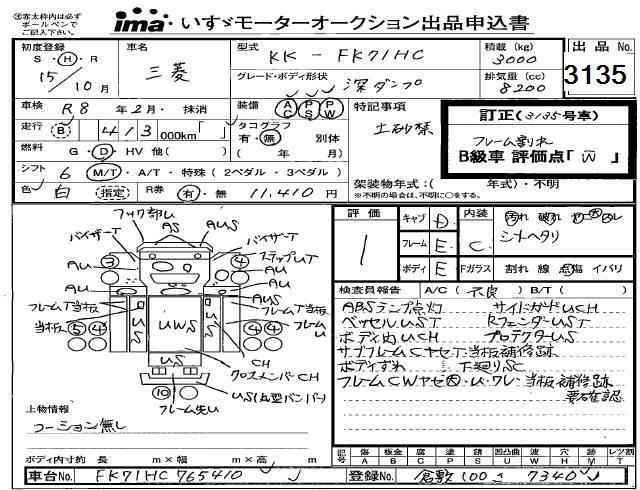 ※赤太枠内は必ず
ボールペンで
ご記入下さい。
ima いすゞモーターオークション出品申込書
初度登録 車名 型式 KK - FK71HC 積載 (kg) 3000 出品 No.
S・H・R 15年 10月 三菱 グレード・ボディ形状 深ダンプ 排気量 (cc) 8200 3135
車検 R8年 2月・ 抹消 装備 AC PS PW 特記事項
土砂禁
訂正(3135号車)
フレーム割れ
B級車 評価点「W」
走行 (B) 「413,000km「 」 タコグラフ 有・無 別体 ( 年 月)
燃料 G・D・HV 他( )
シフト 6 M/T・A/T・特殊 (2ペダル・3ペダル)
色 白 (指定) R券 有・無 11,410円
架装物年式:( 年式)・不明
※不明の場合は、不明に○をする。
フック部U
AS AUS
バイザーT バイザーT
③ ④ ステップUT
AU AU
AU AU
フレームT当板 フレームT当板
当板 フレームU
⑤④ ④④
US UWS US
CH
クロスメンバーCH
US
US(凸型バンパー)
⑩
フレーム先U
上物情報
コーション無し
評価 1
キャブ D 内装 C 汚れ 破れ コゲ穴 ルレ
フレーム E シートヘタリ
ボディ E Fガラス 割れ 線 点傷 イバリ
検査員報告 A/C(不良) B/T( )
ABSランプ点灯 サイドガードUCH
ベッセルUST RフェンダーUST
ボディ内UCH プロテクターUS
サブフレームCヤセT当板補修跡
ボディずれ 下廻りSC
フレームCWヤセ穴・U・ワレ・当板補修跡
要確認
記号 傷 A 板金 B 腐 C 塗 P 錆 S 凹凸曲 U 波 W 穴 H メ跡 M レンズ割 T
ボディ内寸約 長 m×幅 m×高 m
車台No. FK71HC765410 登録No. 倉敷100さ7340